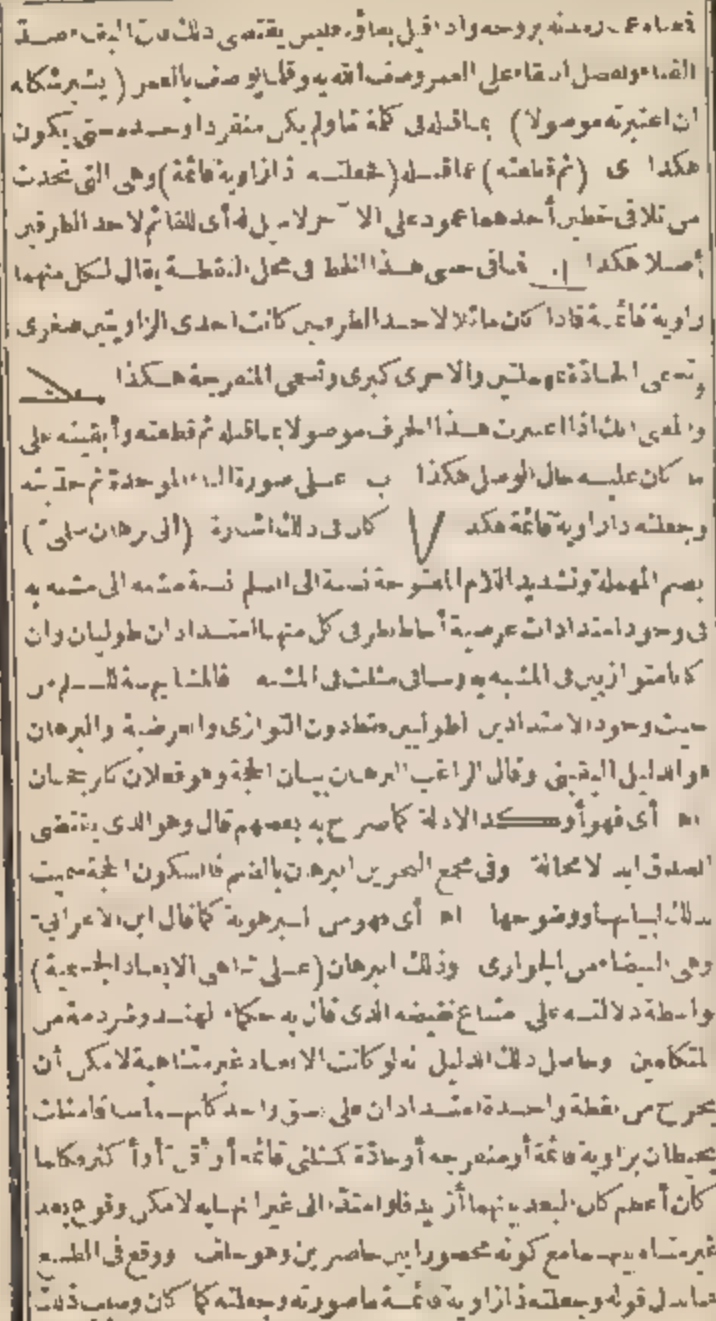 بروحه واذا قيل بعمره فليس يقتضى ذلك فان البقاء ضد
الفناء ولفضل البقاء على العمر وصف الله به وقلما يوصف بالعمر (يشير شكله
ان اعتبرته موصولا) بما قبله فى كلمة تما ولم يكن منفردا وحده حتى يكون
هكذا ى (ثم قطعته) عما قبله (فجعلته ذا زاوية قائمة) وهى التى تحدث
من تلاقى خطين أحدهما عمود على الآخر لا ميل له أى للقائم لاحد الطرفين
أصلا هكذا ا. فما فى هذا الخط فى محل النقطة يقال لكل منهما
زاوية قائمة فاذا كان مائلا لاحد الطرفين كانت احدى الزاويتين صغرى
وتسمى الحادة بمهملتين والاخرى كبرى وتسمى المنفرجة هكذا
والمعنى انك اذا اعتبرت هذا الحرف موصولا بما قبله ثم قطعته وأبقيته على
ما كان عليه حال الوصل هكذا ب على صورة الباء الموحدة ثم
وجعلته ذا زاوية قائمة هكذا كان فى ذلك اشارة (الى برهان سلمى)
بضم المهملة وتشديد اللام المفتوحة نسبة الى السلم نسبة مشبه الى مشبه به
فى وجود امتدادات عرضية أحاط بطرفى كل منها امتدادان طوليان وان
كانا متوازيين فى المشبه به وساقى مثلث فى المشبه فالمشابهة للسلم من
حيث وجود الامتدادين الطوليين فقط دون التوازى والعرضية والبرهان
هو الدليل اليقينى وقال الراغب البرهان بيان الحجة وهو فعلان كالرجحان
اه أى فهو أوكد الادلة كما صرح به بعضهم قال وهو الذى يقتضى
الصدق أبدا لا محالة وفى مجمع البحرين البرهان بالضم فالسكون الحجة سميت
بذلك لبيانها ووضوحها اه أى فهو من البرهوبة كما قال ابن الاعرابى
وهى البيضاء من الجوارى وذلك البرهان (على تناهى الابعاد الجسمية)
بواسطة دلالته على امتناع نقيضه الذى قال به حكماء الهند وشرذمة من
المتكلمين وحاصل ذلك الدليل أنه لو كانت الابعاد غير متناهية لامكن أن
يخرج من نقطة واحدة امتدادان على نسق واحد كأنهما ساقا مثلث
يحيطان بزاوية قائمة أو منفرجة أو حادة كثلثى قائمة أو أقل أو أكثر فكلما
كان أعظم كان البعد بينهما أزيد فلو امتدا الى غير النهاية لامكن وقوع بعد
غير متناه بينهما مع كونه محصورا بين حاصرين وهو خلف ووقع فى الطبع
بدل قوله وجعلته ذا زاوية قائمة ما صورته وجعلته كما كان